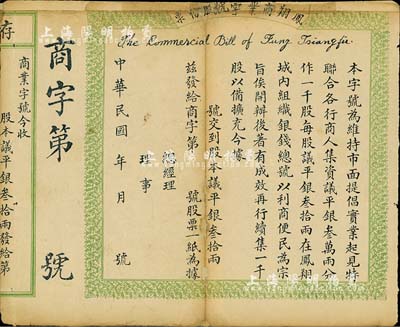 鳳翔商業字號股份票
The Commercial Bill of Fung Tsiangfu
本字號為維持市面提倡實業起見特
聯合各行商人集資議平銀叁萬兩分
作一千股每股議平銀叁拾兩在鳳翔
城內組織銀錢總號以利商便民為宗
旨俟開辦後著有成效再行續集一千
股以備擴充今據
號交到股本議平銀叁拾兩
茲發給商字第 號股票一紙為據
總經理
理事
中華民國 年 月 號
商字第 號
商業字號今收
股本議平銀叁拾兩發給第
存
上海陽明拍賣
上海陽明拍賣
上海陽明拍賣
上海陽明拍賣